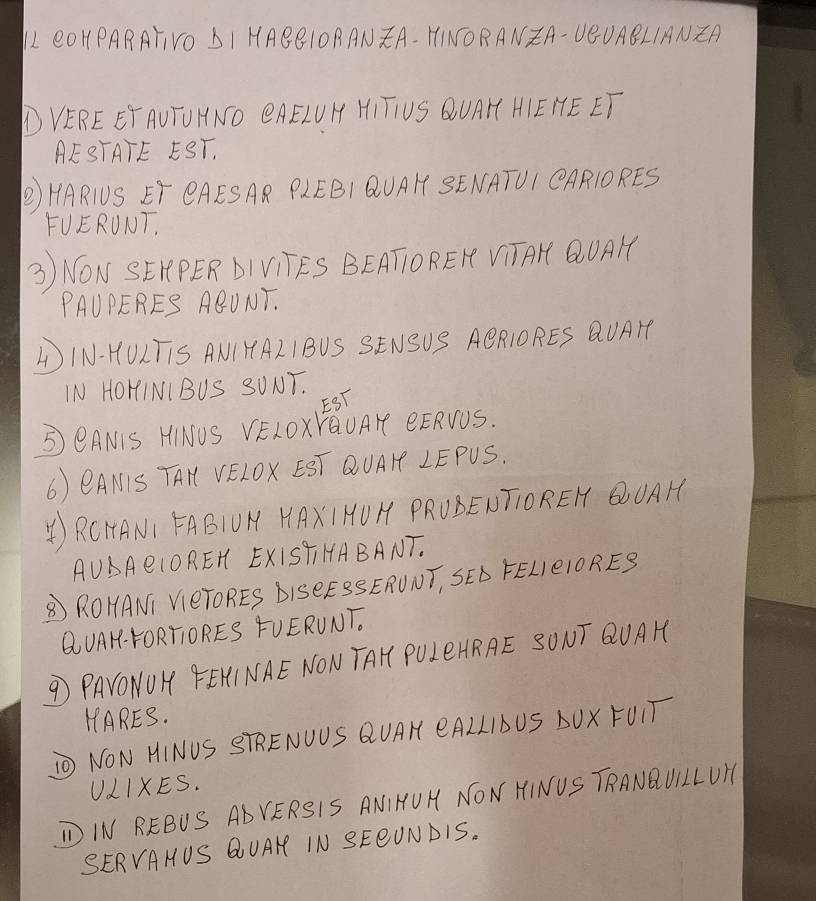 IL COMPARATIVO DI MAGGIORANZA - MINORANZA - UGUAGLIANZA
1) VERE ET AUTUMNO CAELUM MITIUS QUAM HIEME ET
AESTATE EST.
2) MARIUS ET CAESAR PLEBI QUAM SENATUI CARIORES
FUERUNT.
3) NON SEMPER DIVITES BEATIOREM VITAM QUAM
PAUPERES AGUNT.
4) IN MULTIS ANIMALIBUS SENSUS ACRIORES QUAM
IN HOMINIBUS SUNT.
5) CANIS MINUS VELOX EST QUAM CERVUS.
6) CANIS TAM VELOX EST QUAM LEPUS.
7) ROMANI FABIUM MAXIMUM PRUDENTIOREM QUAM
AUDACIOREM EXISTIMABANT.
8) ROMANI VICTORES DISCESSERUNT, SED FELICIORES
QUAM FORTIORES FUERUNT.
9) PAVONUM FEMINAE NON TAM PULCHRAE SUNT QUAM
MARES.
10) NON MINUS STRENUUS QUAM CALLIDUS DUX FUIT
ULIXES.
11) IN REBUS ADVERSIS ANIMUM NON MINUS TRANQUILLUM
SERVAMUS QUAM IN SECUNDIS.